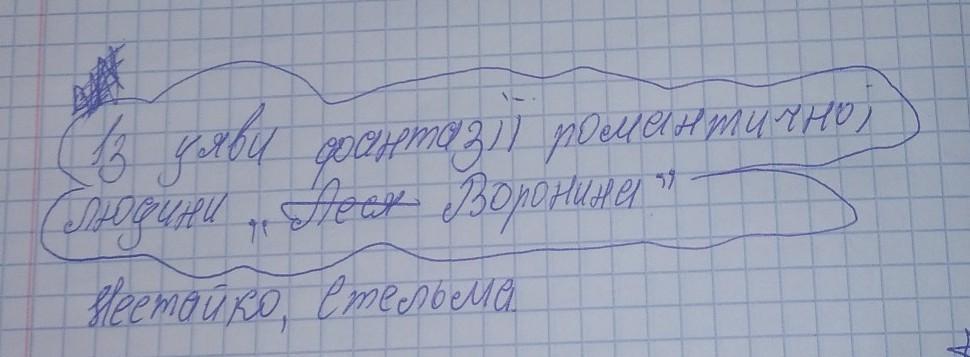 Із уяви фантазіі романтичної
людини „Леся Воронина"
Нестайко, Стельма